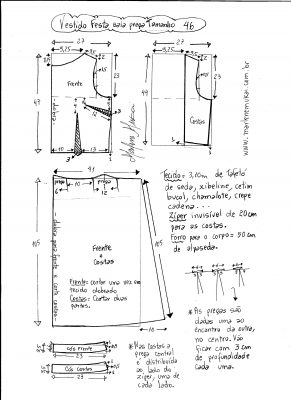 Vestido Festa saia prega Tamanho 46
27
9,25
2
23
Frente
49
dobra
10
13
3
23
27
9,25
2
23
49
Costas
1
www.marlenemukai.com.br
41
prega
prega
6
12
105
Frente
e
Costas
Frente: cortar uma vez no
tecido dobrado
Costas: Cortar duas
partes.
105
10
Tecido = 3,10m de Tafetá
de seda, xibeline, cetim
buçol, chamalote, crepe
cadena...
Zíper invisível de 20cm
para as costas.
Forro para o corpo = 50cm
de alpaseda.
* As pregas são
dadas uma ao
encontro da outra, no
centro. Vão
ficar com 3 cm
de profundidade
cada uma.
Cós frente
23
Cós costas
23
* Nas costas a
prega central
é distribuída
ao lado do
zíper, uma de
cada lado.